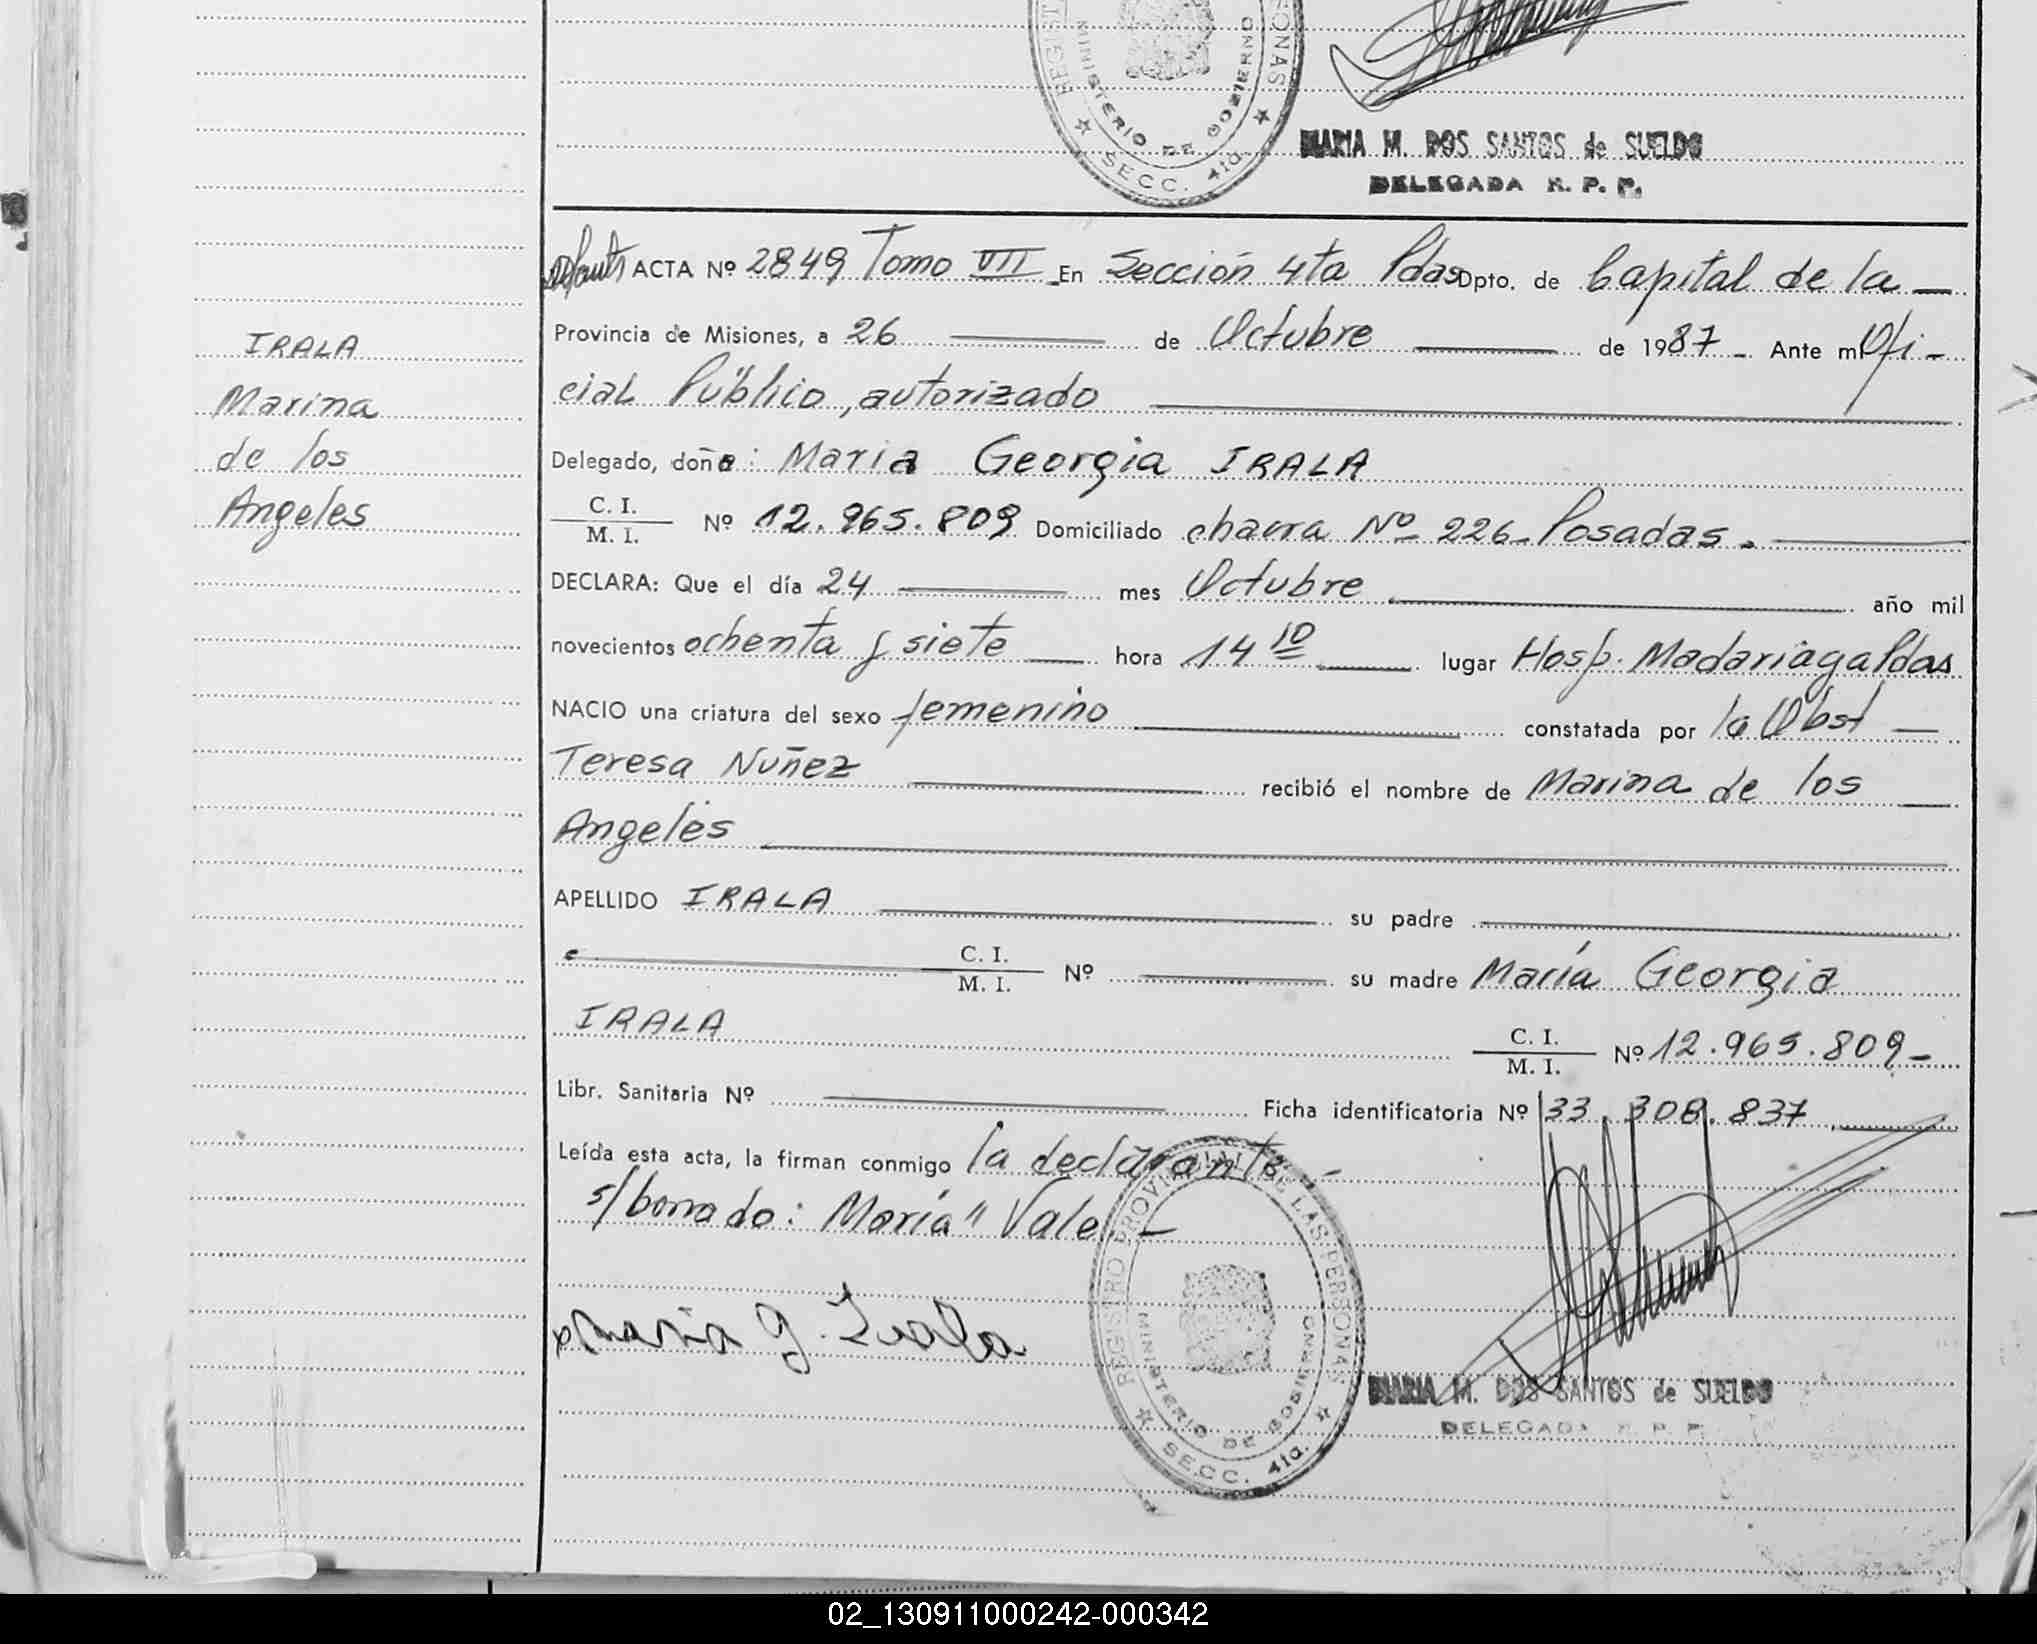 REGIST ONAS
MINISTERIO DE GOBIERNO
SECC. 4ta.
MARIA M. DOS SANTOS de SUELDO
DELEGADA R. P. P.
ACTA Nº 2849 Tomo VII En Sección 4ta Pdas Dpto. de Capital de la
Provincia de Misiones, a 26 de Octubre de 1987 - Ante mí Ofi-
cial Público, autorizado
Delegado, doña: Maria Georgia IRALA
C. I.
M. I. Nº 12.965.809 Domiciliado chacra Nº 226 - Posadas.
DECLARA: Que el día 24 mes Octubre año mil
novecientos ochenta y siete hora 14 10 lugar Hosp. Madariaga Pdas
NACIO una criatura del sexo femenino constatada por la Obst
Teresa Nuñez recibió el nombre de Marina de los
Angeles
APELLIDO IRALA su padre
C. I.
M. I. Nº su madre María Georgia
IRALA C. I.
M. I. Nº 12.965.809-
Libr. Sanitaria Nº Ficha identificatoria Nº 33.308.837
Leída esta acta, la firman conmigo la declarante -
s/borrado: María" Vale -
Maria G. Irala
REGISTRO PROVINCIAL DE LAS PERSONAS
MINISTERIO DE GOBIERNO
SECC. 4ta.
MARIA M. DOS SANTOS de SUELDO
DELEGADA R. P. P.
IRALA
Marina
de los
Angeles
02_130911000242-000342